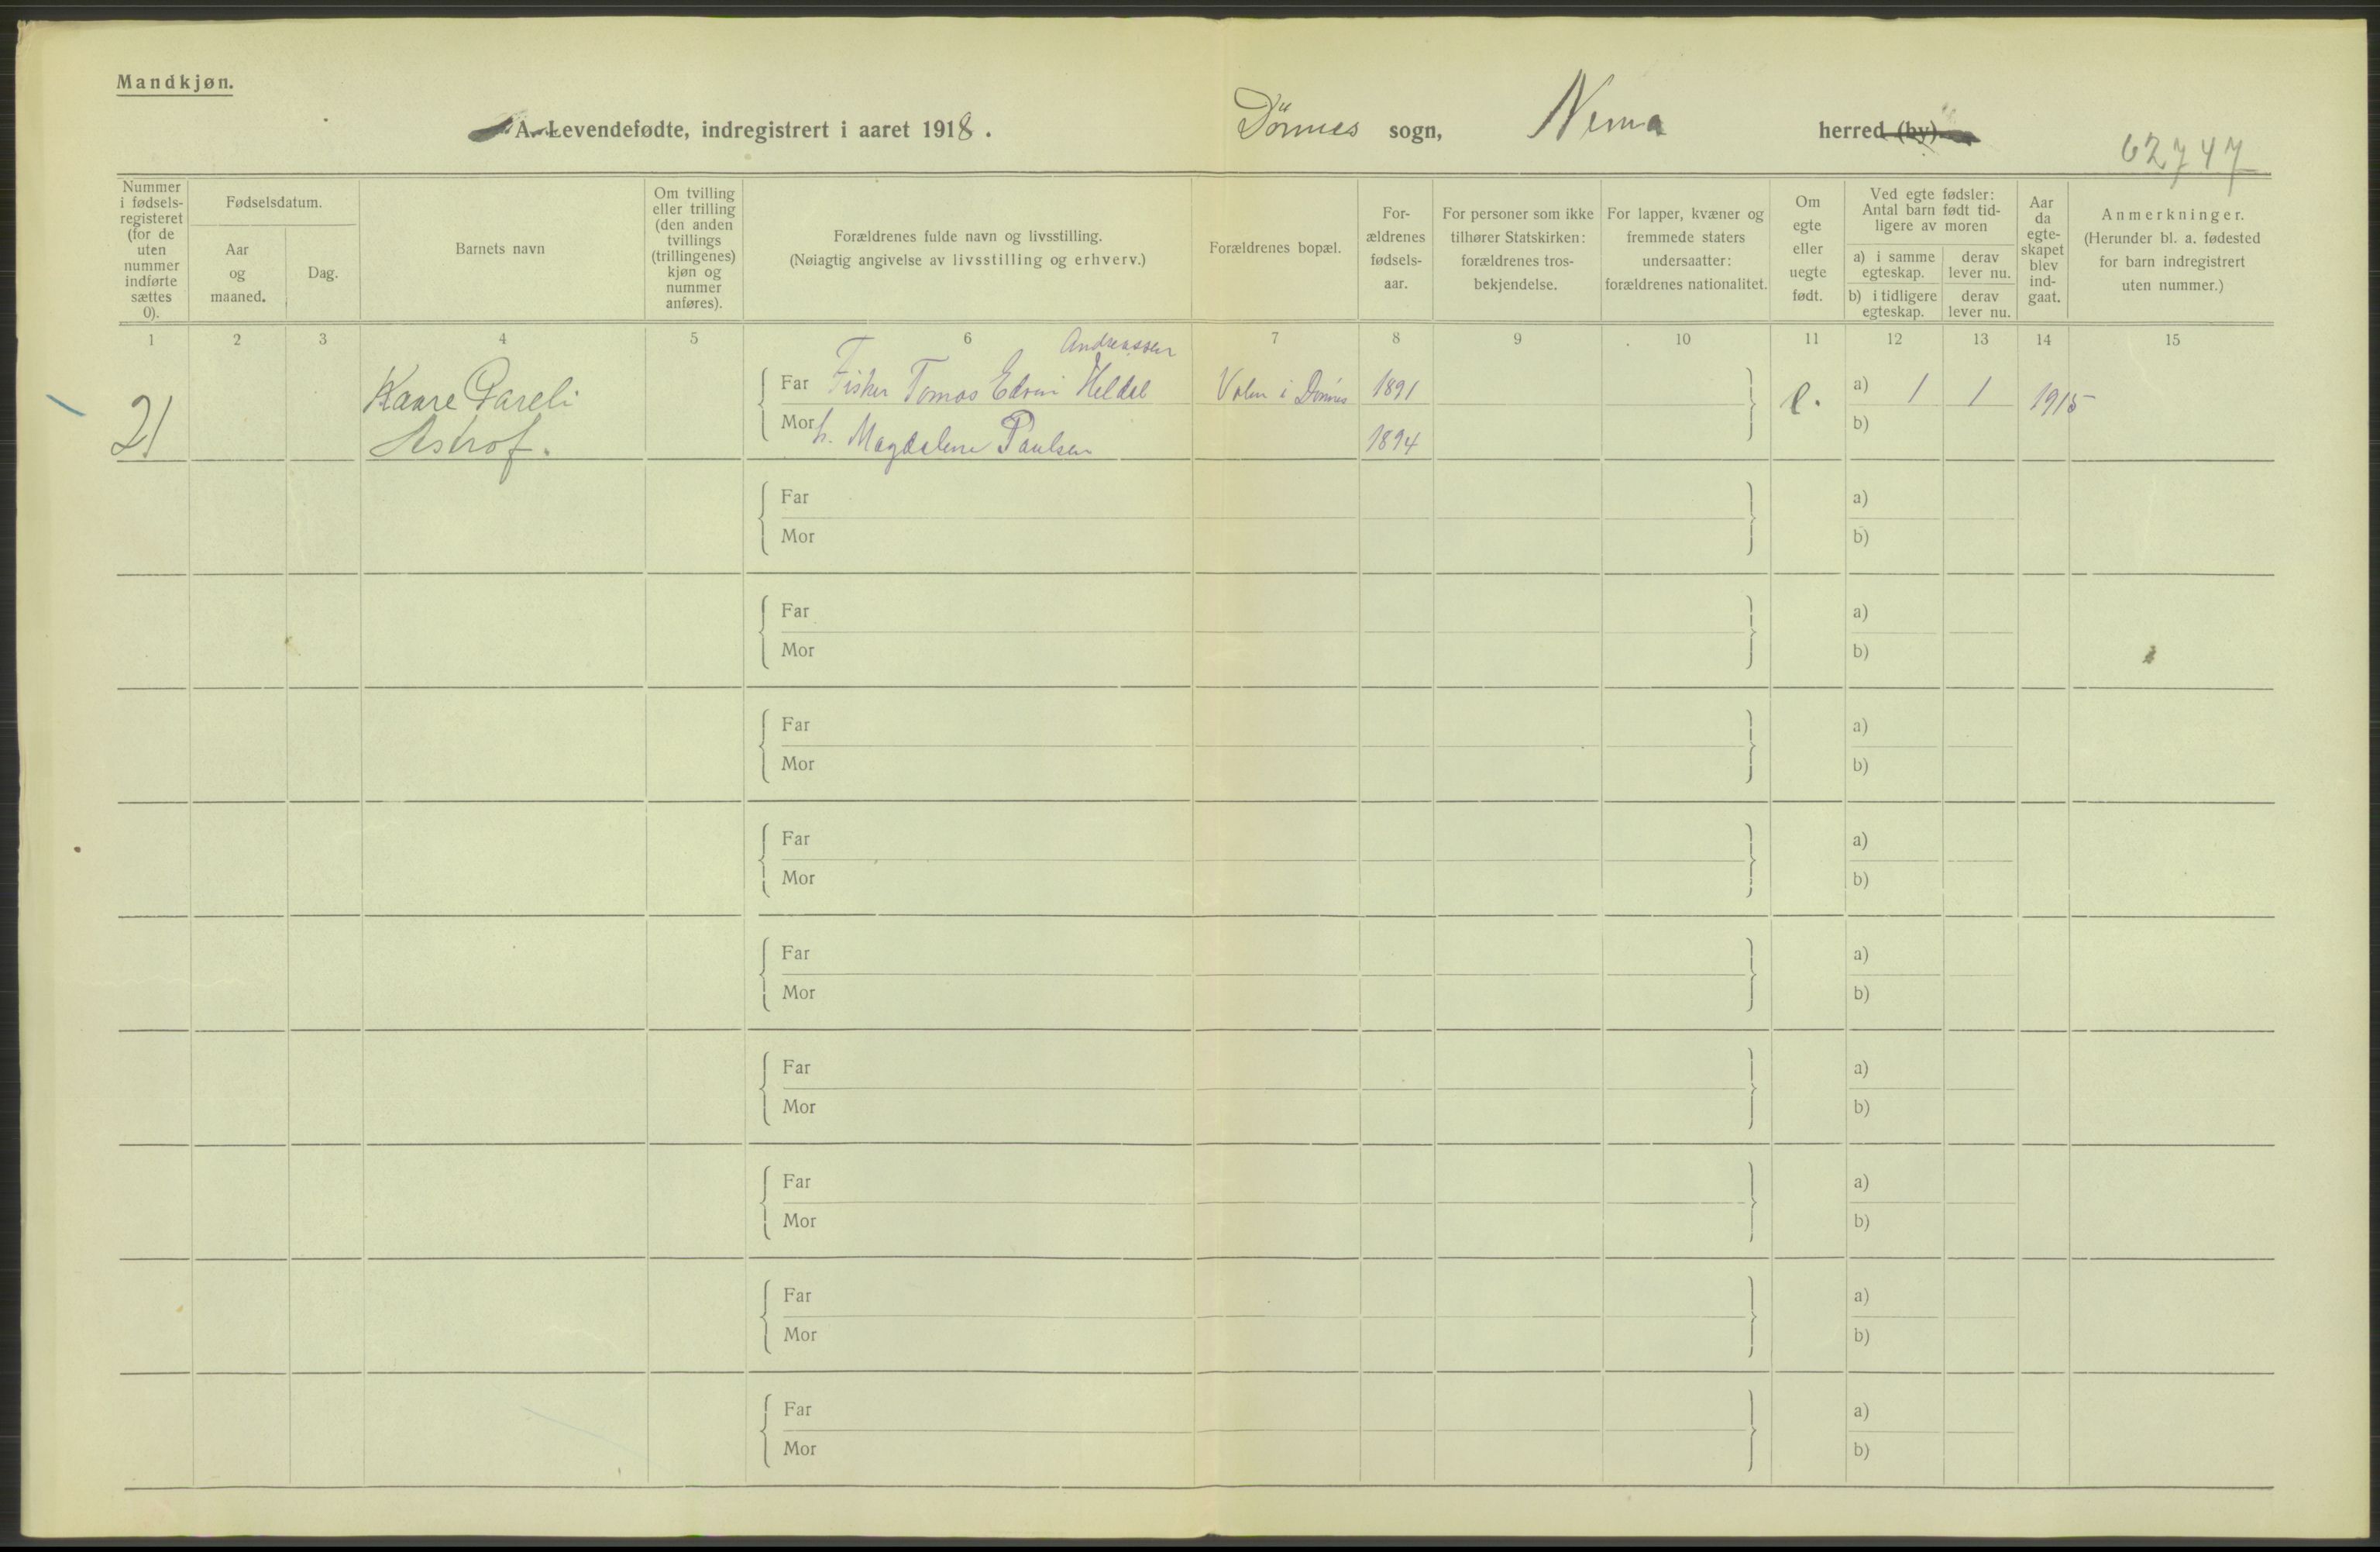 Mandkjøn.
A. Levendefødte, indregistrert i aaret 1918. Dönnes sogn, Nesna herred (by).
62747
Nummer i fødsels-registeret (for de uten nummer indførte sættes 0).
Fødselsdatum.
Aar og maaned.
Dag.
Barnets navn
Om tvilling eller trilling (den anden tvillings (trillingenes) kjøn og nummer anføres).
Forældrenes fulde navn og livsstilling.
(Nøiagtig angivelse av livsstilling og erhverv.)
Forældrenes bopæl.
For-ældrenes fødsels-aar.
For personer som ikke tilhører Statskirken: forældrenes tros-bekjendelse.
For lapper, kvæner og fremmede staters undersaatter: forældrenes nationalitet.
Om egte eller uegte født.
Ved egte fødsler: Antal barn født tid-ligere av moren
a) i samme egteskap.
derav lever nu.
b) i tidligere egteskap.
derav lever nu.
Aar da egte-skapet blev ind-gaat.
Anmerkninger.
(Herunder bl. a. fødested for barn indregistrert uten nummer.)
1 2 3 4 5 6 7 8 9 10 11 12 13 14 15
Andreassen
21 Kaare Pareli Far Fisker Tomas Edvin Heldal i Dönnes 1891 e. a) 1 1 1915
Mor h. Magdalene Paulsen 1894 b)
Far a)
Mor b)
Far a)
Mor b)
Far a)
Mor b)
Far a)
Mor b)
Far a)
Mor b)
Far a)
Mor b)
Far a)
Mor b)
Far a)
Mor b)
Far a)
Mor b)